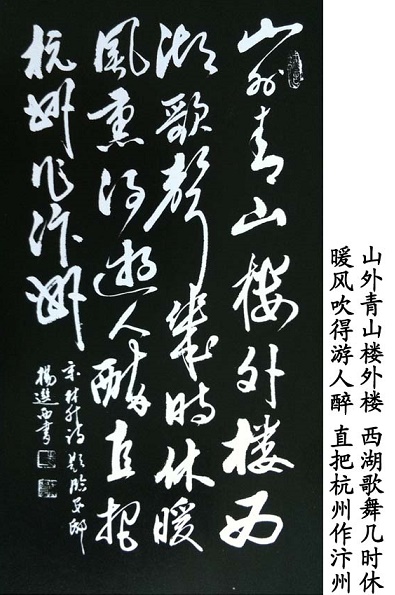 山外青山楼外楼 西湖歌舞几时休
暖风吹得游人醉 直把杭州作汴州
山外青山楼外楼西
湖歌聲幾時休暖
風熏得遊人醉直把
杭州作汴州
宋林升诗题临安邸
楊選西书